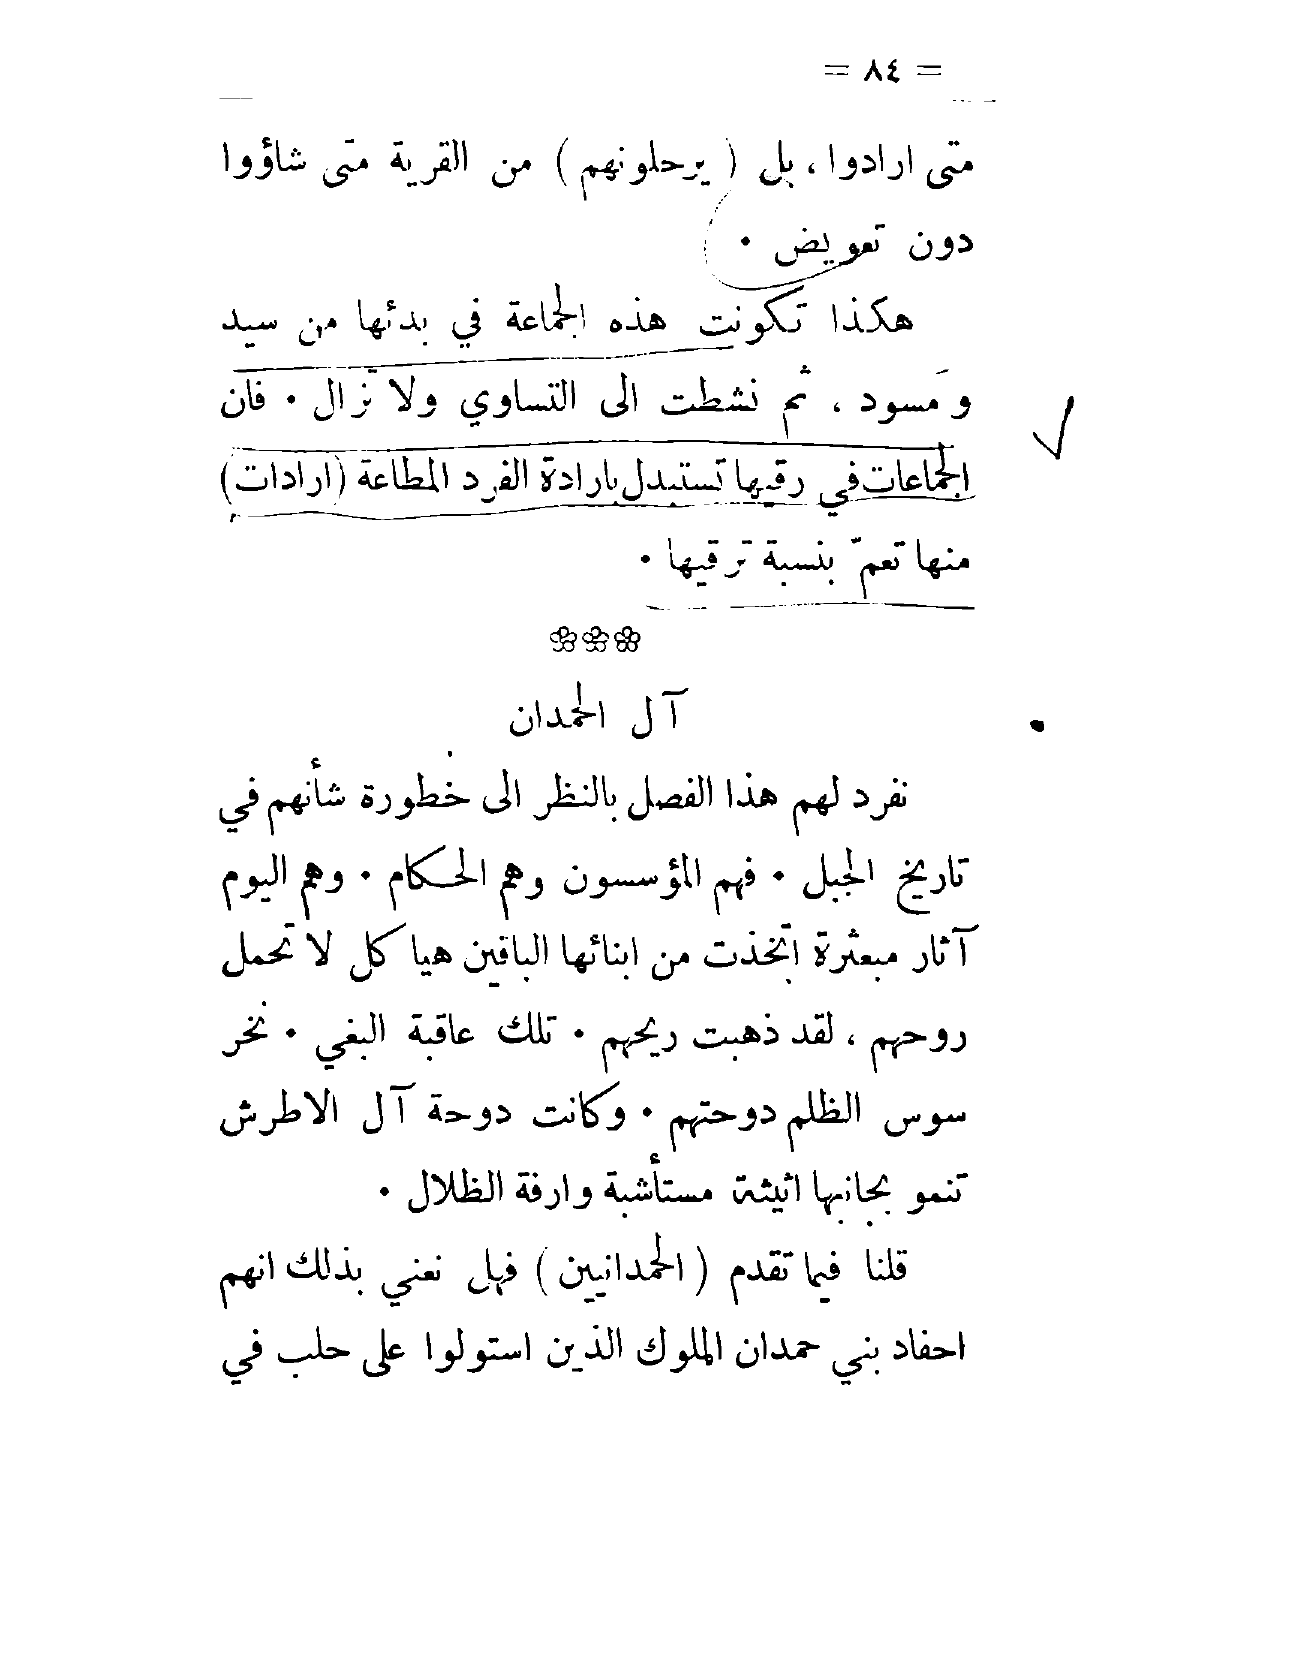 = ٨٤ =
متى ارادوا ، بل ( يرحلونهم ) من القرية متى شاؤوا
دون تعويض .
هكذا تكونت هذه الجماعة في بدئها من سيد
ومَسود ، ثم نشطت الى التساوي ولا تزال . فان
الجماعات في رقيها تستبدل بارادة الفرد المطاعة (ارادات)
منها تعمّ بنسبة ترقيها .
آل الحمدان
نفرد لهم هذا الفصل بالنظر الى خطورة شأنهم في
تاريخ الجبل . فهم المؤسسون وهم الحكام . وهم اليوم
آثار مبعثرة اتخذت من ابنائها الباقين هياكل لا تحمل
روحهم ، لقد ذهبت ريحهم . تلك عاقبة البغي . نخر
سوس الظلم دوحتهم . وكانت دوحة آل الاطرش
تنمو بجانبها اثيثة مستأشبة وارفة الظلال .
قلنا فيما تقدم ( الحمدانيين ) فهل نعني بذلك انهم
احفاد بني حمدان الملوك الذين استولوا على حلب في